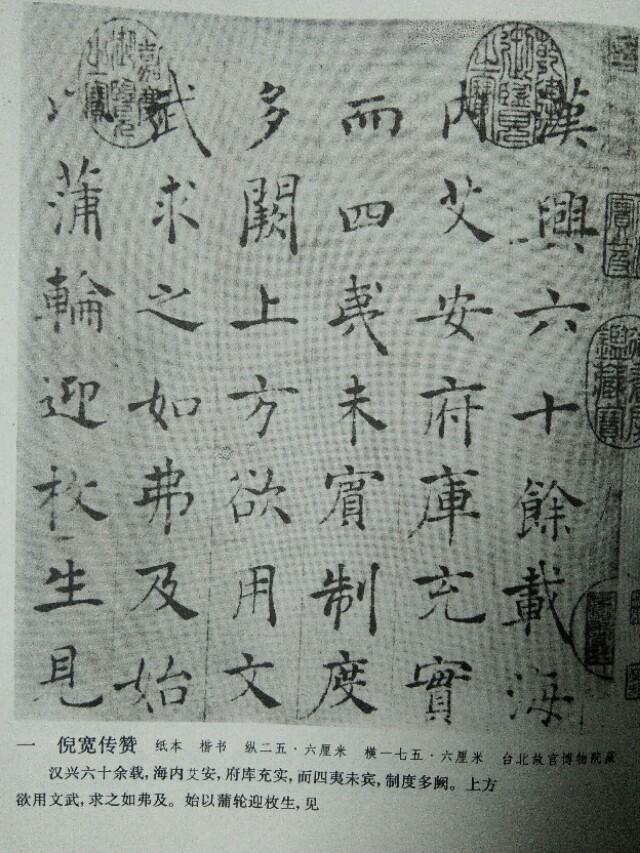 漢興六十餘載海
内艾安府庫充實
而四夷未賓制度
多闕上方欲用文
武求之如弗及始
以蒲輪迎枚生見
乾隆御覽之寶
嘉慶御覽之寶
一 倪宽传赞 纸本 楷书 纵二五·六厘米 横一七五·六厘米 台北故宫博物院藏
汉兴六十余载，海内艾安，府库充实，而四夷未宾，制度多阙。上方
欲用文武，求之如弗及。始以蒲轮迎枚生，见